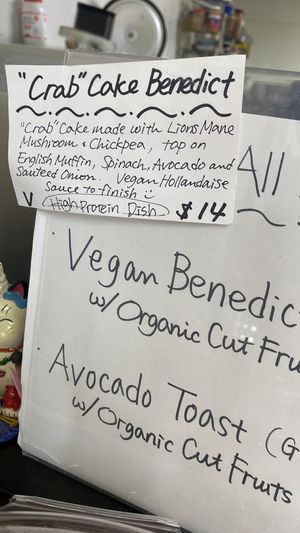 "Crab" Cake Benedict
"Crab" Cake made with Lions Mane
Mushroom & Chickpea, top on
English Muffin, Spinach, Avocado and
Sauteed Onion. Vegan Hollandaise
Sauce to finish
V High Protein Dish $14
All
· Vegan Benedic
w/ Organic Cut Fru
· Avocado Toast (G
w/ Organic Cut Fruits